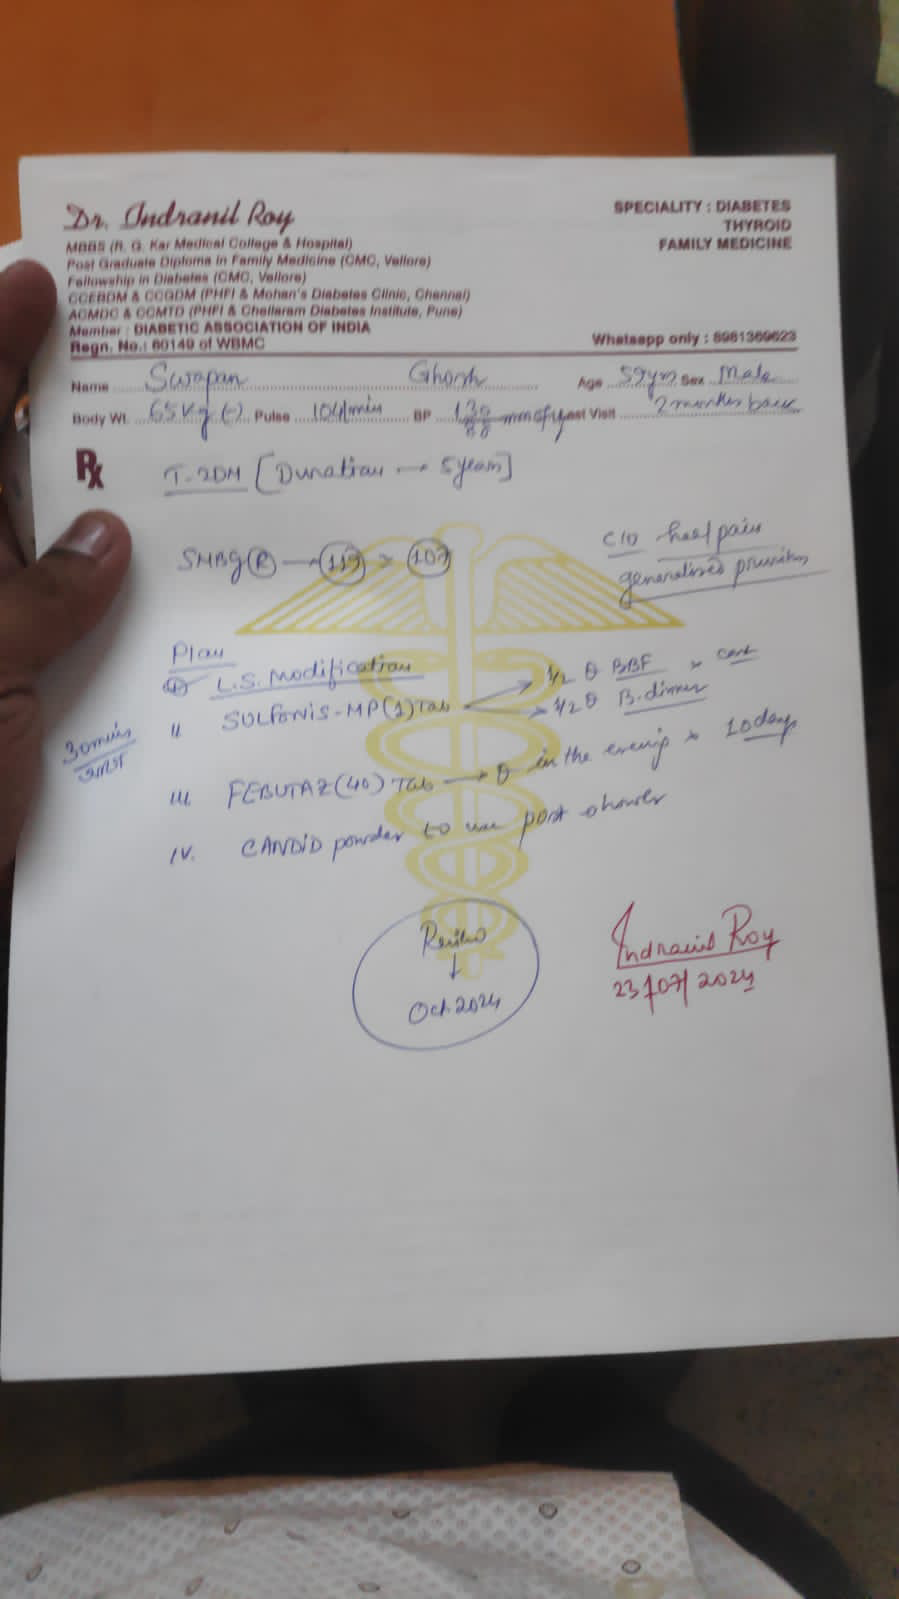 Dr. Indranil Roy
MBBS (R. G. Kar Medical College & Hospital)
Post Graduate Diploma in Family Medicine (CMC, Vellore)
Fellowship in Diabetes (CMC, Vellore)
CCEBDM & CCGDM (PHFI & Mohan's Diabetes Clinic, Chennai)
ACMDC & CCMTD (PHFI & Chellaram Diabetes Institute, Pune)
Member : DIABETIC ASSOCIATION OF INDIA
Regn. No.: 60149 of WBMC
SPECIALITY : DIABETES
THYROID
FAMILY MEDICINE
Whatsapp only : 8981369623
Name Swapan Ghosh Age 59yrs Sex Male
Body Wt. 65kg (-) Pulse 104/min BP 130/88 mm of Hg Last Visit 2 months back
Rx T-2DM [Duration → 5years]
SMBG (R) → 119 > 107
C/O heel pain
generalised pruritus
Plan
L.S. Modification
30mins
ii SULFONIS-MP(1) Tab → 1/2 θ BBF × cont
→ 1/2 θ B.dinner
iii FEBUTAZ(40) Tab → θ in the evening × 10days
IV. CANDID powder to use post shower
Review
↓
Oct 2024
Indranil Roy
23/07/2024